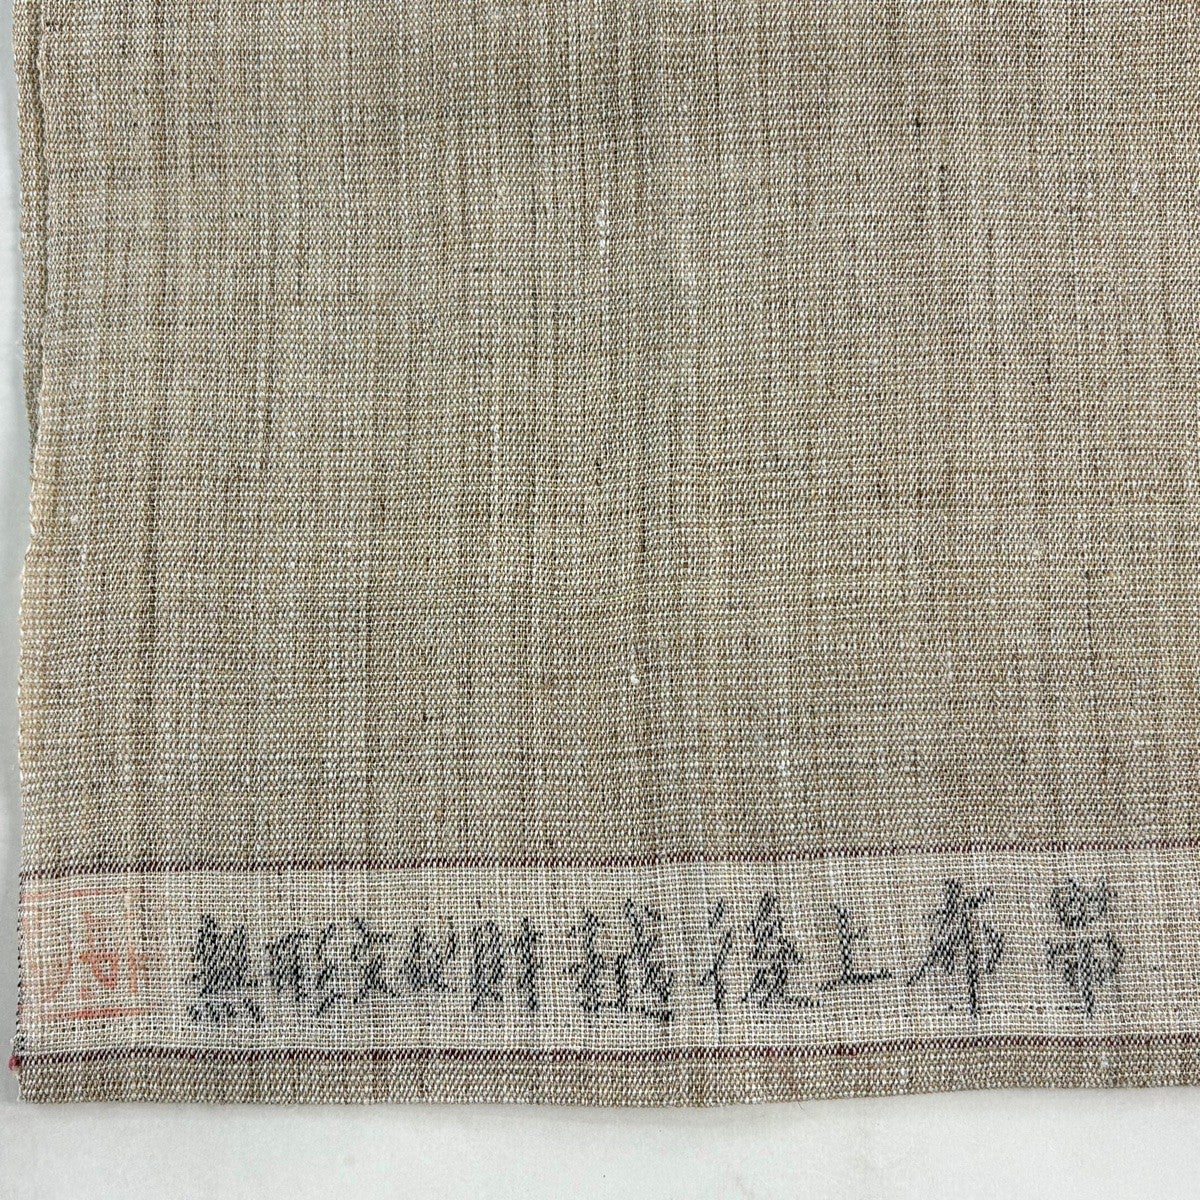 無形文化財 越後上布